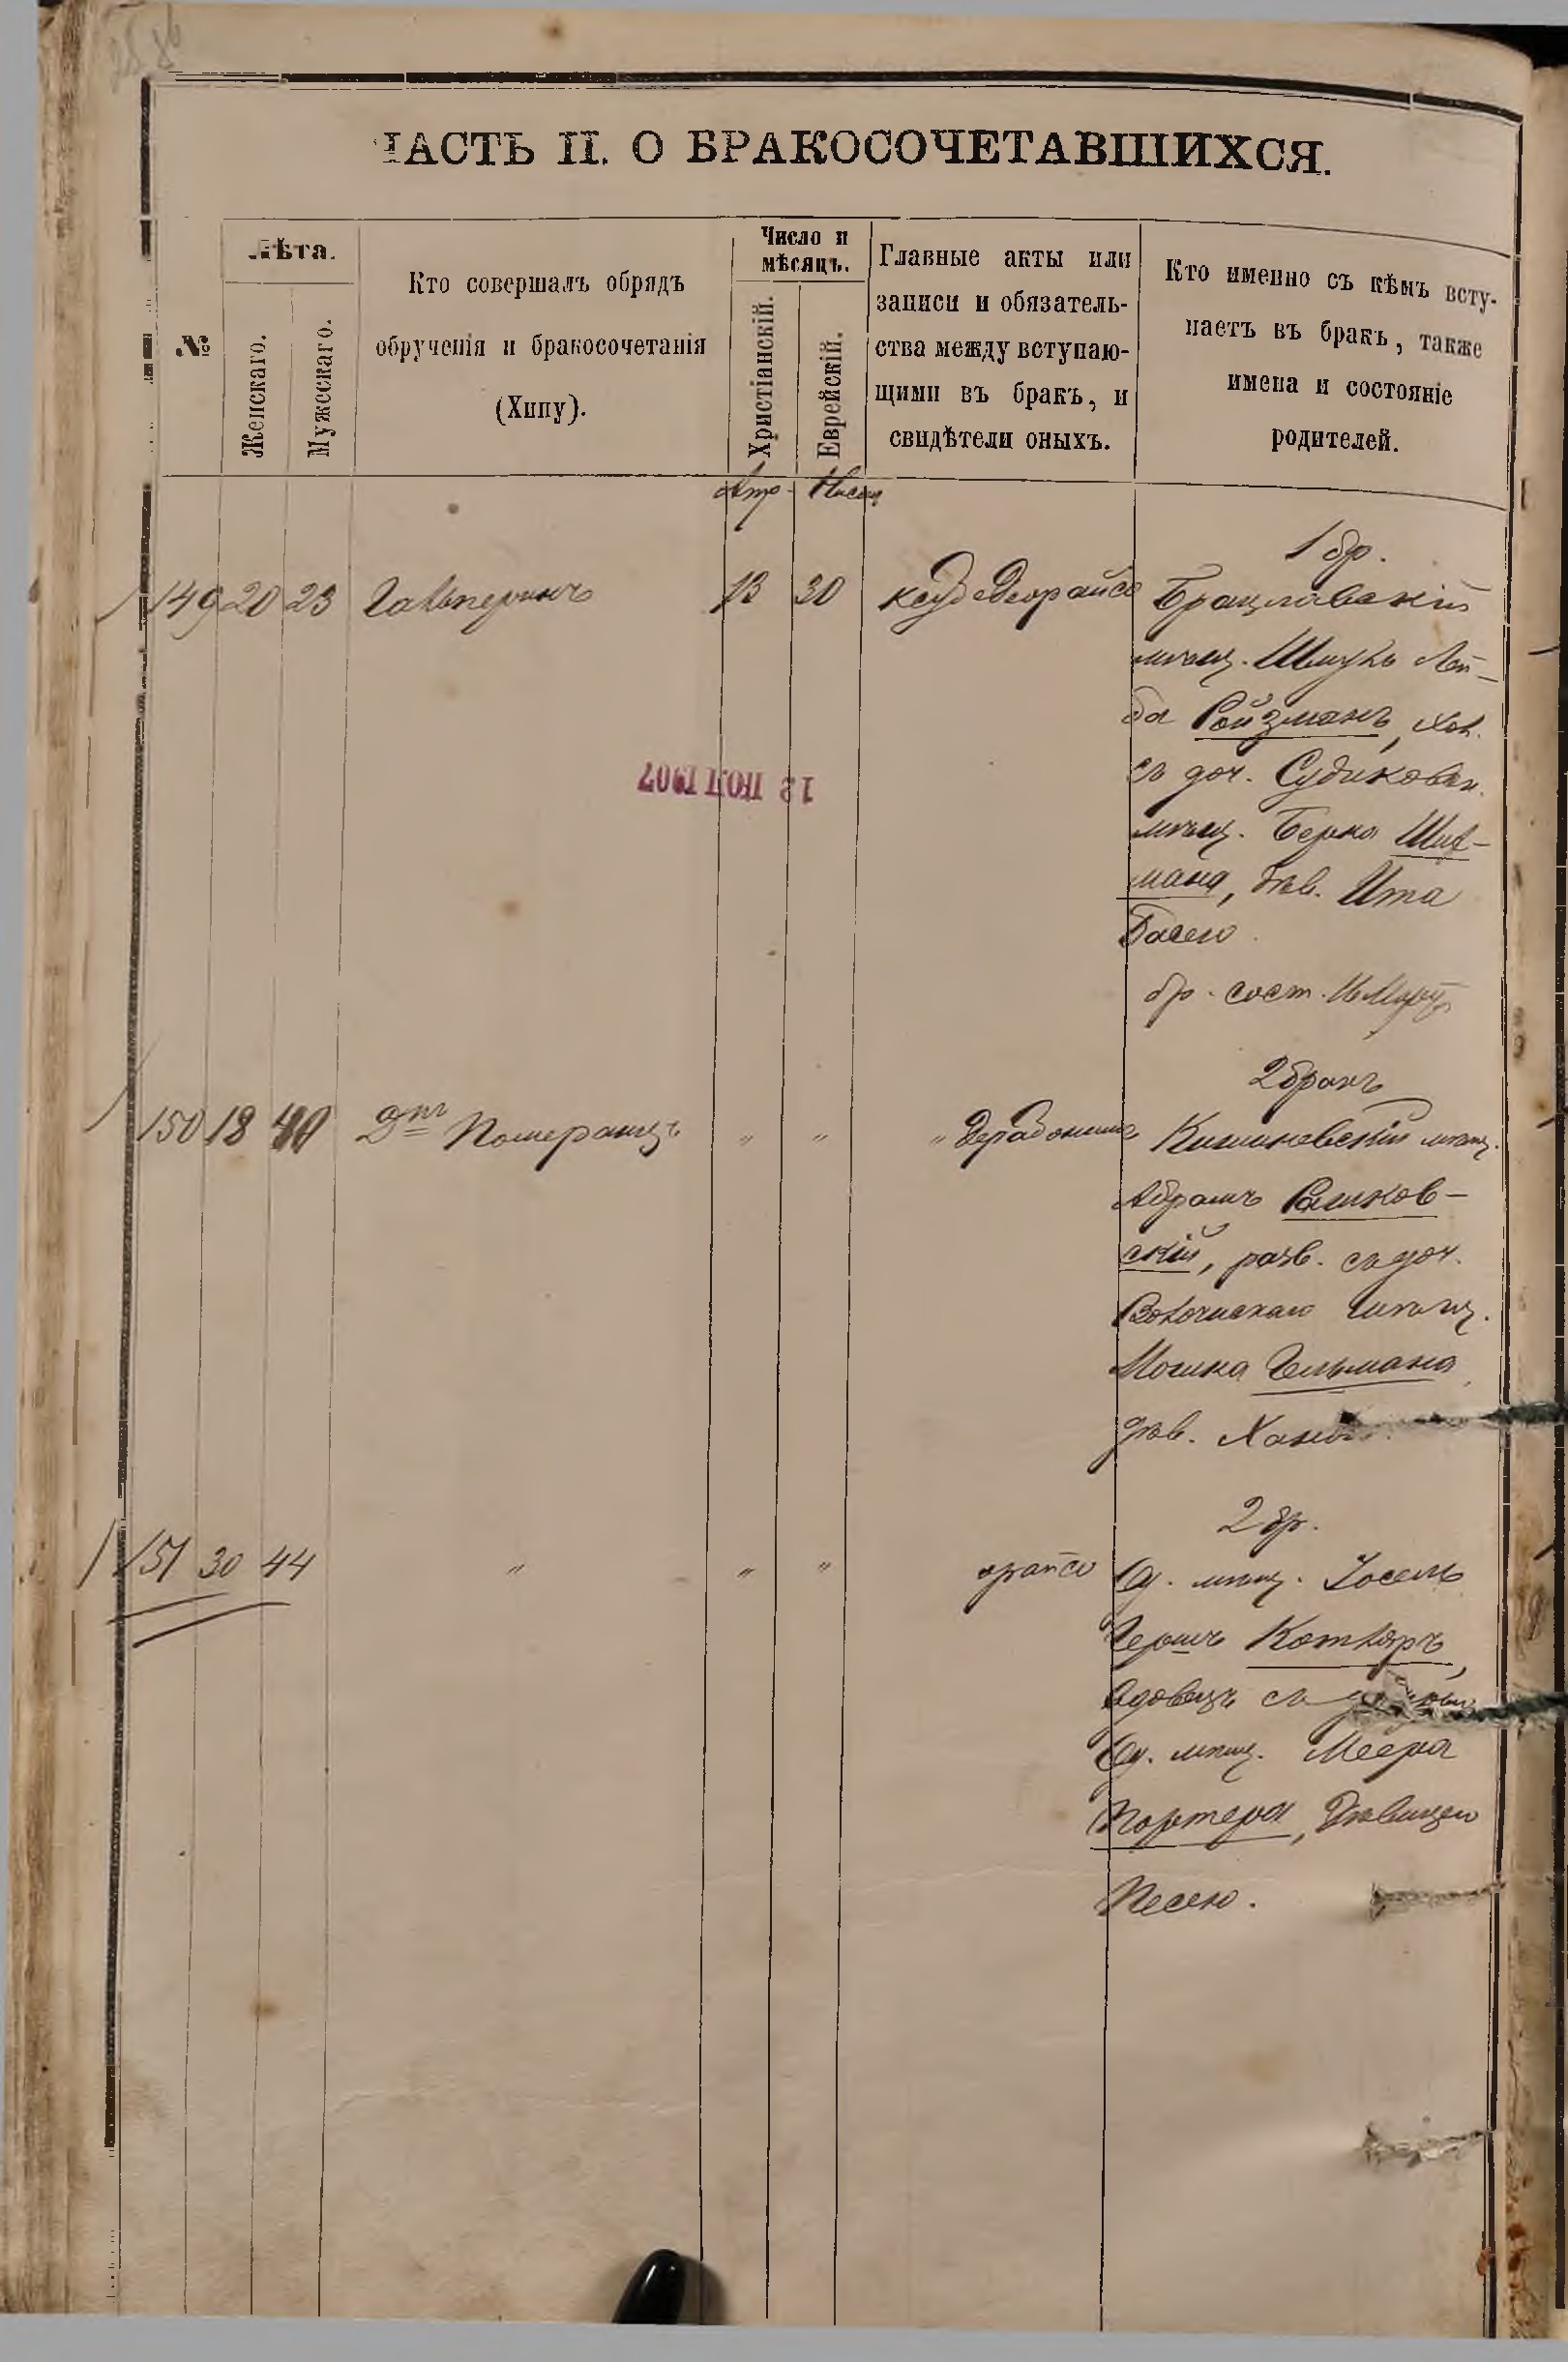 ЧАСТЬ II. О БРАКОСОЧЕТАВШИХСЯ.
№
Лѣта.
Женскаго.
Мужескаго.
Кто совершалъ обрядъ
обрученія и бракосочетанія
(Хипу).
Число и
мѣсяцъ.
Христіанскій.
Еврейскій.
Главные акты или
записи и обязатель-
ства между вступаю-
щими въ бракъ, и
свидѣтели оныхъ.
Кто именно съ кѣмъ всту-
паетъ въ бракъ, также
имена и состояніе
родителей.
Апр. Нисан
1 бр.
149 20 23 Гальперинъ 13 30 Деорайсо Брацлавскій
мѣщ. Шмуль Лей-
ба Ройзманъ, хол.
съ доч. Судилковск.
мѣщ. Берка
мана, дѣв. Ита
Басею.
бр. сост.
12 ІЮЛ 1907
2 бракъ
150 18 40 Померанцъ " " " Дерабонимъ Кишиневскій мѣщ.
Абрамъ Рашков-
скій, разв. съ доч.
Волочискаго мѣщ.
Мошка Гельмана
дѣв.
2 бр.
151 30 44 " " " орайсо Од. мѣщ. Іосель
Гершъ Котляръ,
вдовецъ съ
Од. мѣщ. Меера
Портера, дѣвицею
Песею.